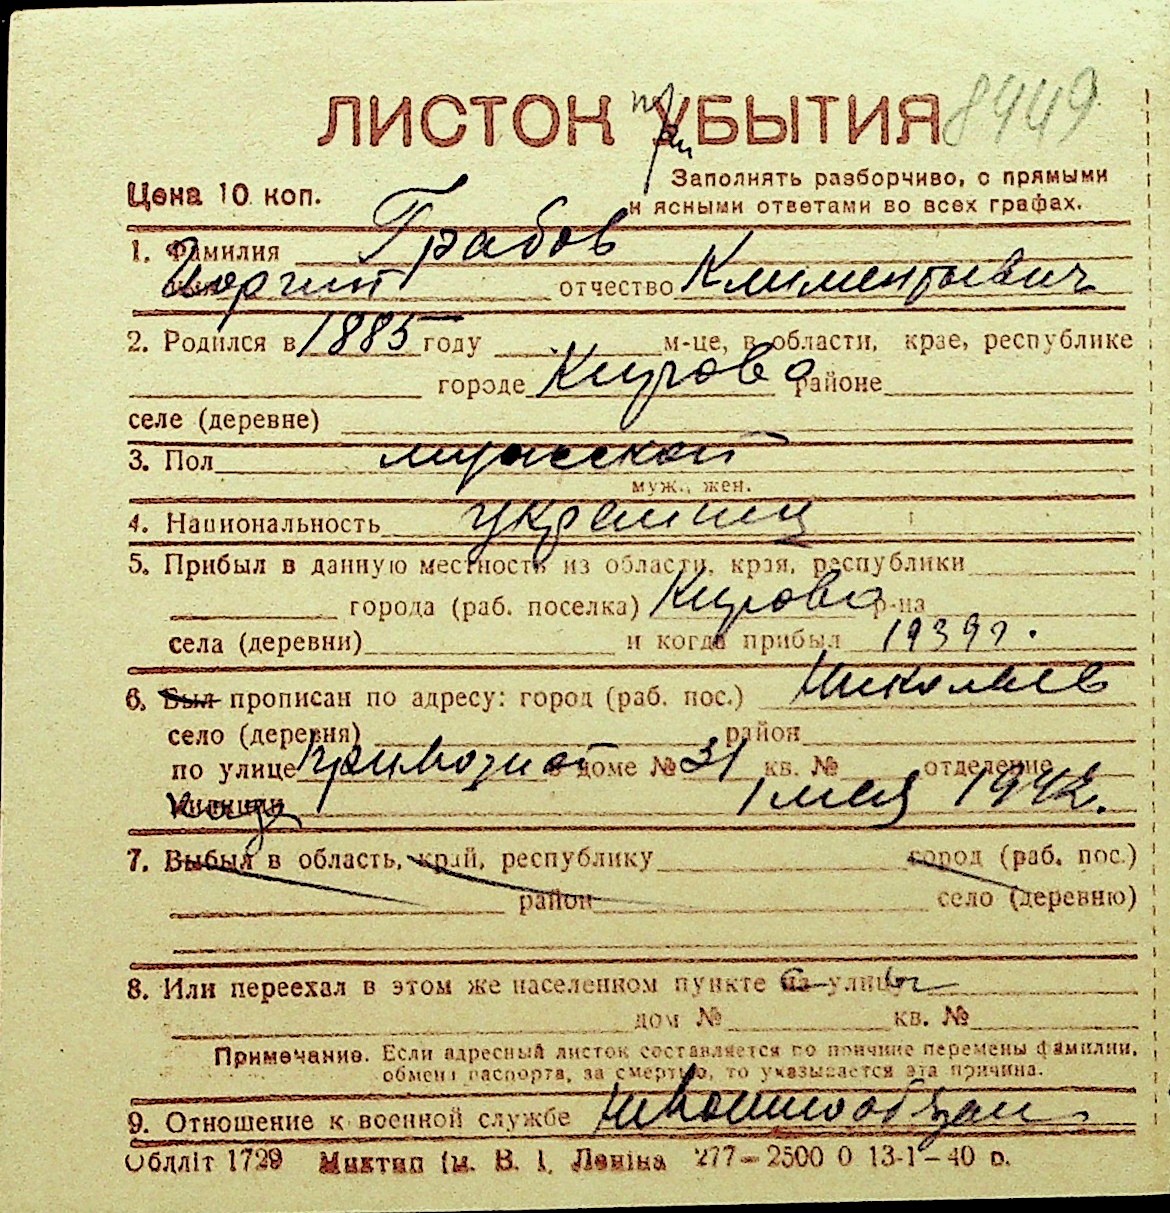 ЛИСТОК УБЫТИЯ 8449
при
Цена 10 коп.
Заполнять разборчиво, с прямыми
и ясными ответами во всех графах.
1. Фамилия Грабов
отчество Климентьевич
2. Родился в 1885 году м-це, в области, крае, республике
городе Кирово районе
селе (деревне)
3. Пол мужской
муж., жен.
4. Национальность украинец
5. Прибыл в данную местность из области, края, республики
города (раб. поселка) Кирово р-на
села (деревни) и когда прибыл 1939 г.
6. Был прописан по адресу: город (раб. пос.) Николаев
село (деревня) район
по улице Привозной в доме № 31 кв. № отделение
милиции 1 мая 1942.
7. Выбыл в область, край, республику город (раб. пос.)
район село (деревню)
8. Или переехал в этом же населенном пункте с улицы
дом № кв. №
Примечание. Если адресный листок составляется по причине перемены фамилии,
обмена паспорта, за смертью, то указывается эта причина.
9. Отношение к военной службе невоеннообязан
Облліт 1729 Миктип ім. В. І. Леніна 277—2500 0 13-1—40 р.